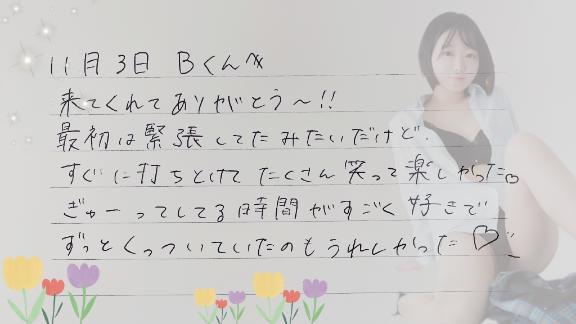 11月3日 Bくんへ
来てくれてありがとう〜!!
最初は緊張してたみたいだけど、
すぐに打ちとけて たくさん笑って楽しかった♡
ぎゅーってしてる時間がすごく好きで
ずっとくっついていたのもうれしかった♡